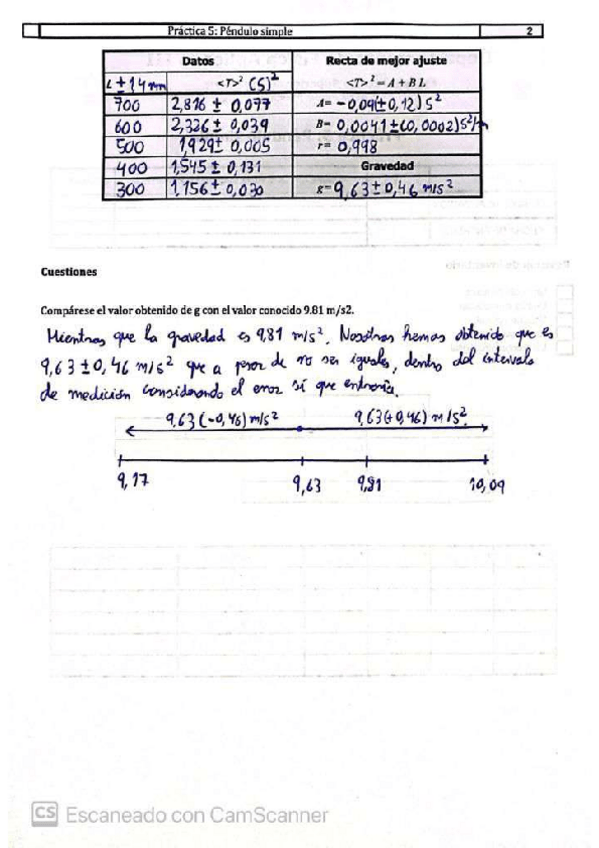 Práctica 5: Péndulo simple 2
Datos Recta de mejor ajuste
L ± 14 mm <T>² (s)² <T>² = A + B L
700 2,816 ± 0,077 A= -0,09(±0,12) s²
600 2,326 ± 0,039 B= 0,0041±(0,0002)s²/m
500 1,929± 0,005 r= 0,998
400 1,545 ± 0,131 Gravedad
300 1,156 ± 0,030 g= 9,63 ± 0,46 m/s²
Cuestiones
Compárese el valor obtenido de g con el valor conocido 9.81 m/s2.
Mientras que la gravedad es 9,81 m/s². Nosotros hemos obtenido que es
9,63 ± 0,46 m/s² que a pesar de no ser iguales, dentro del intervalo
de medición considerando el error si que entraría.
9,63 (-0,46) m/s² 9,63(+0,46) m/s²
9,17 9,63 9,81 10,09
CS Escaneado con CamScanner